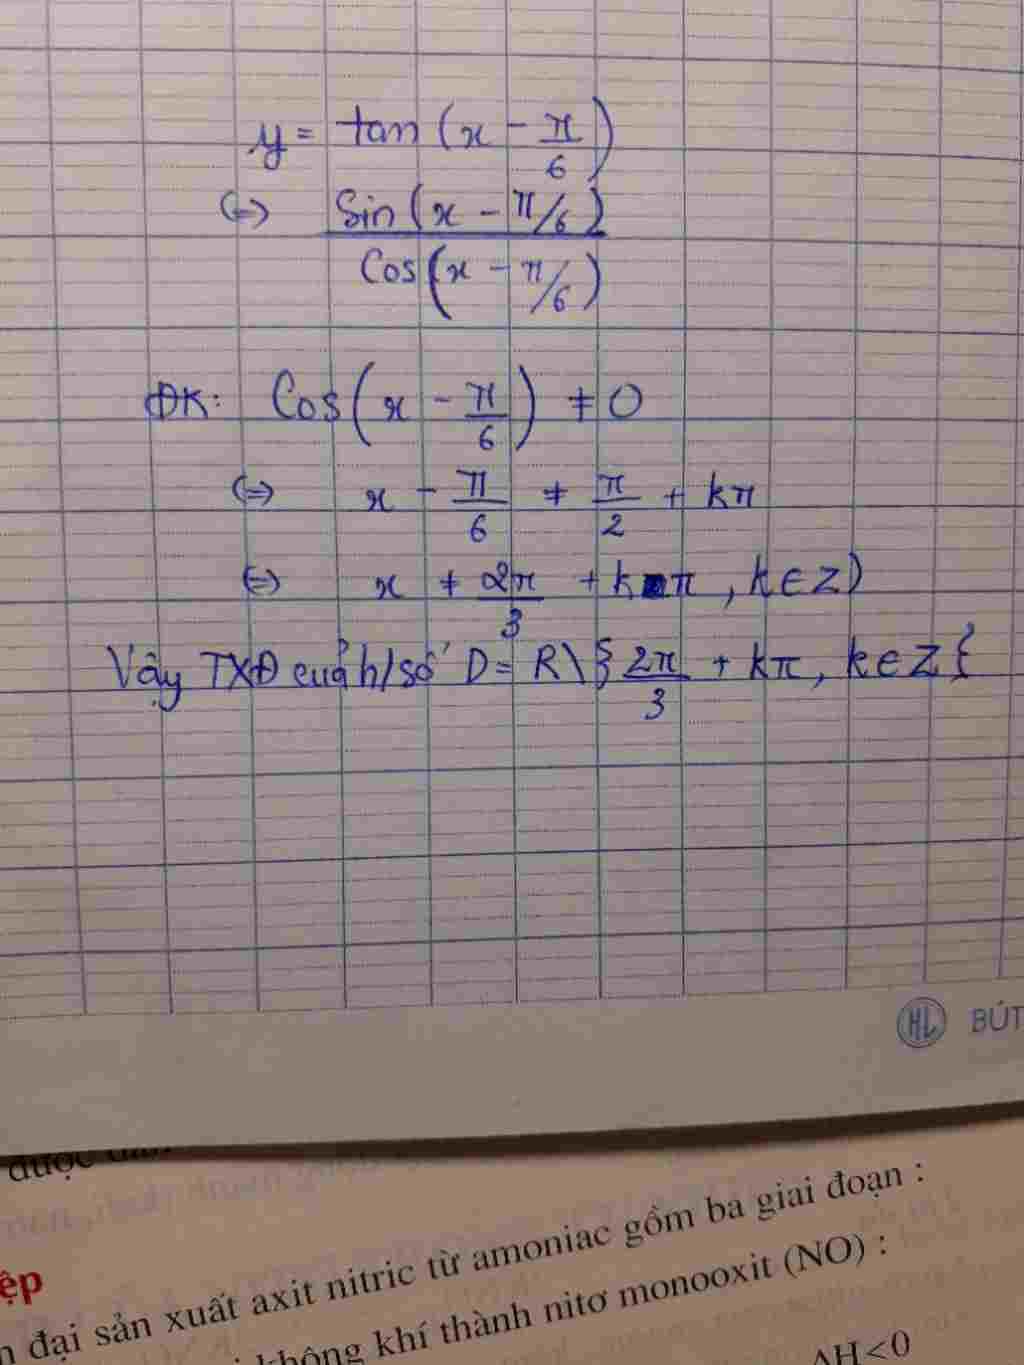 y = tan (x - π/6)
(=) Sin (x - π/6)
Cos (x - π/6)
ĐK: Cos (x - π/6) ≠ 0
(=) x - π/6 ≠ π/2 + kπ
(=) x ≠ 2π/3 + kπ, k ∈ Z)
Vậy TXĐ của h/số D = R \ } 2π/3 + kπ, k ∈ Z {
HL BÚT
được
ệp
đại sản xuất axit nitric từ amoniac gồm ba giai đoạn :
không khí thành nitơ monooxit (NO) :
ΔH < 0